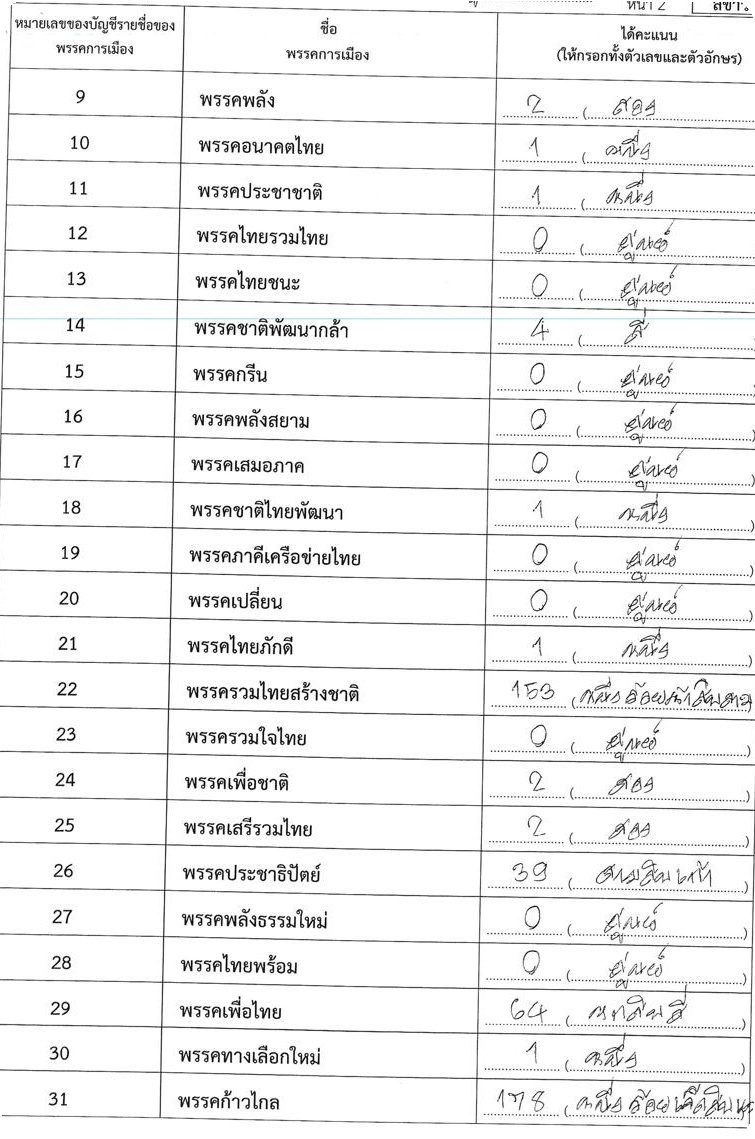 หน้า 2
หมายเลขของบัญชีรายชื่อของพรรคการเมือง ชื่อพรรคการเมือง ได้คะแนน (ให้กรอกทั้งตัวเลขและตัวอักษร)
9 พรรคพลัง 2 (สอง)
10 พรรคอนาคตไทย 1 (หนึ่ง)
11 พรรคประชาชาติ 1 (หนึ่ง)
12 พรรคไทยรวมไทย 0 (ศูนย์)
13 พรรคไทยชนะ 0 (ศูนย์)
14 พรรคชาติพัฒนากล้า 4 (สี่)
15 พรรคกรีน 0 (ศูนย์)
16 พรรคพลังสยาม 0 (ศูนย์)
17 พรรคเสมอภาค 0 (ศูนย์)
18 พรรคชาติไทยพัฒนา 1 (หนึ่ง)
19 พรรคภาคีเครือข่ายไทย 0 (ศูนย์)
20 พรรคเปลี่ยน 0 (ศูนย์)
21 พรรคไทยภักดี 1 (หนึ่ง)
22 พรรครวมไทยสร้างชาติ 153 (หนึ่งร้อยห้าสิบสาม
23 พรรครวมใจไทย 0 (ศูนย์)
24 พรรคเพื่อชาติ 2 (สอง)
25 พรรคเสรีรวมไทย 2 (สอง)
26 พรรคประชาธิปัตย์ 39 (สามสิบเก้า)
27 พรรคพลังธรรมใหม่ 0 (ศูนย์)
28 พรรคไทยพร้อม 0 (ศูนย์)
29 พรรคเพื่อไทย 64 (หกสิบสี่)
30 พรรคทางเลือกใหม่ 1 (หนึ่ง)
31 พรรคก้าวไกล 178 (หนึ่งร้อยเจ็ดสิบ